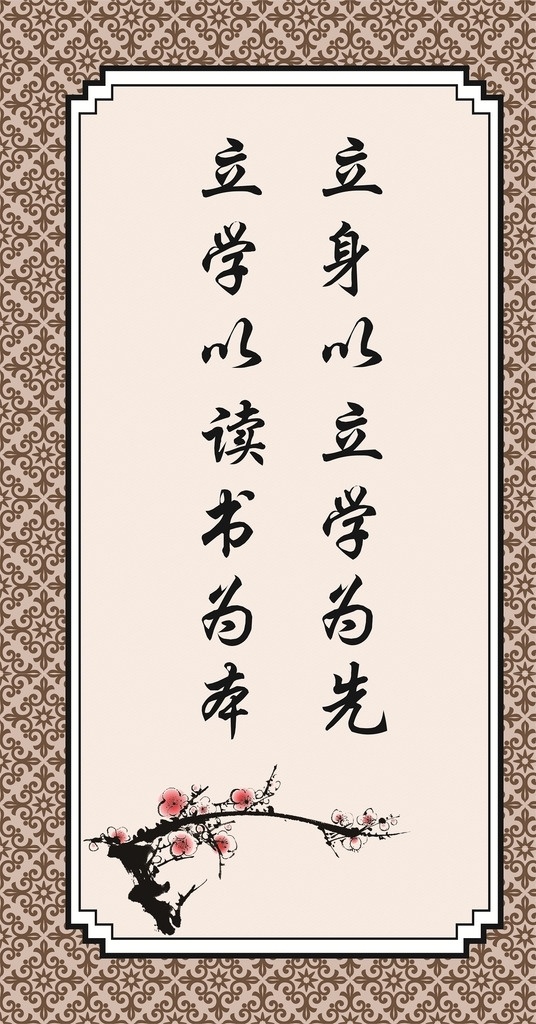 立身以立学为先
立学以读书为本